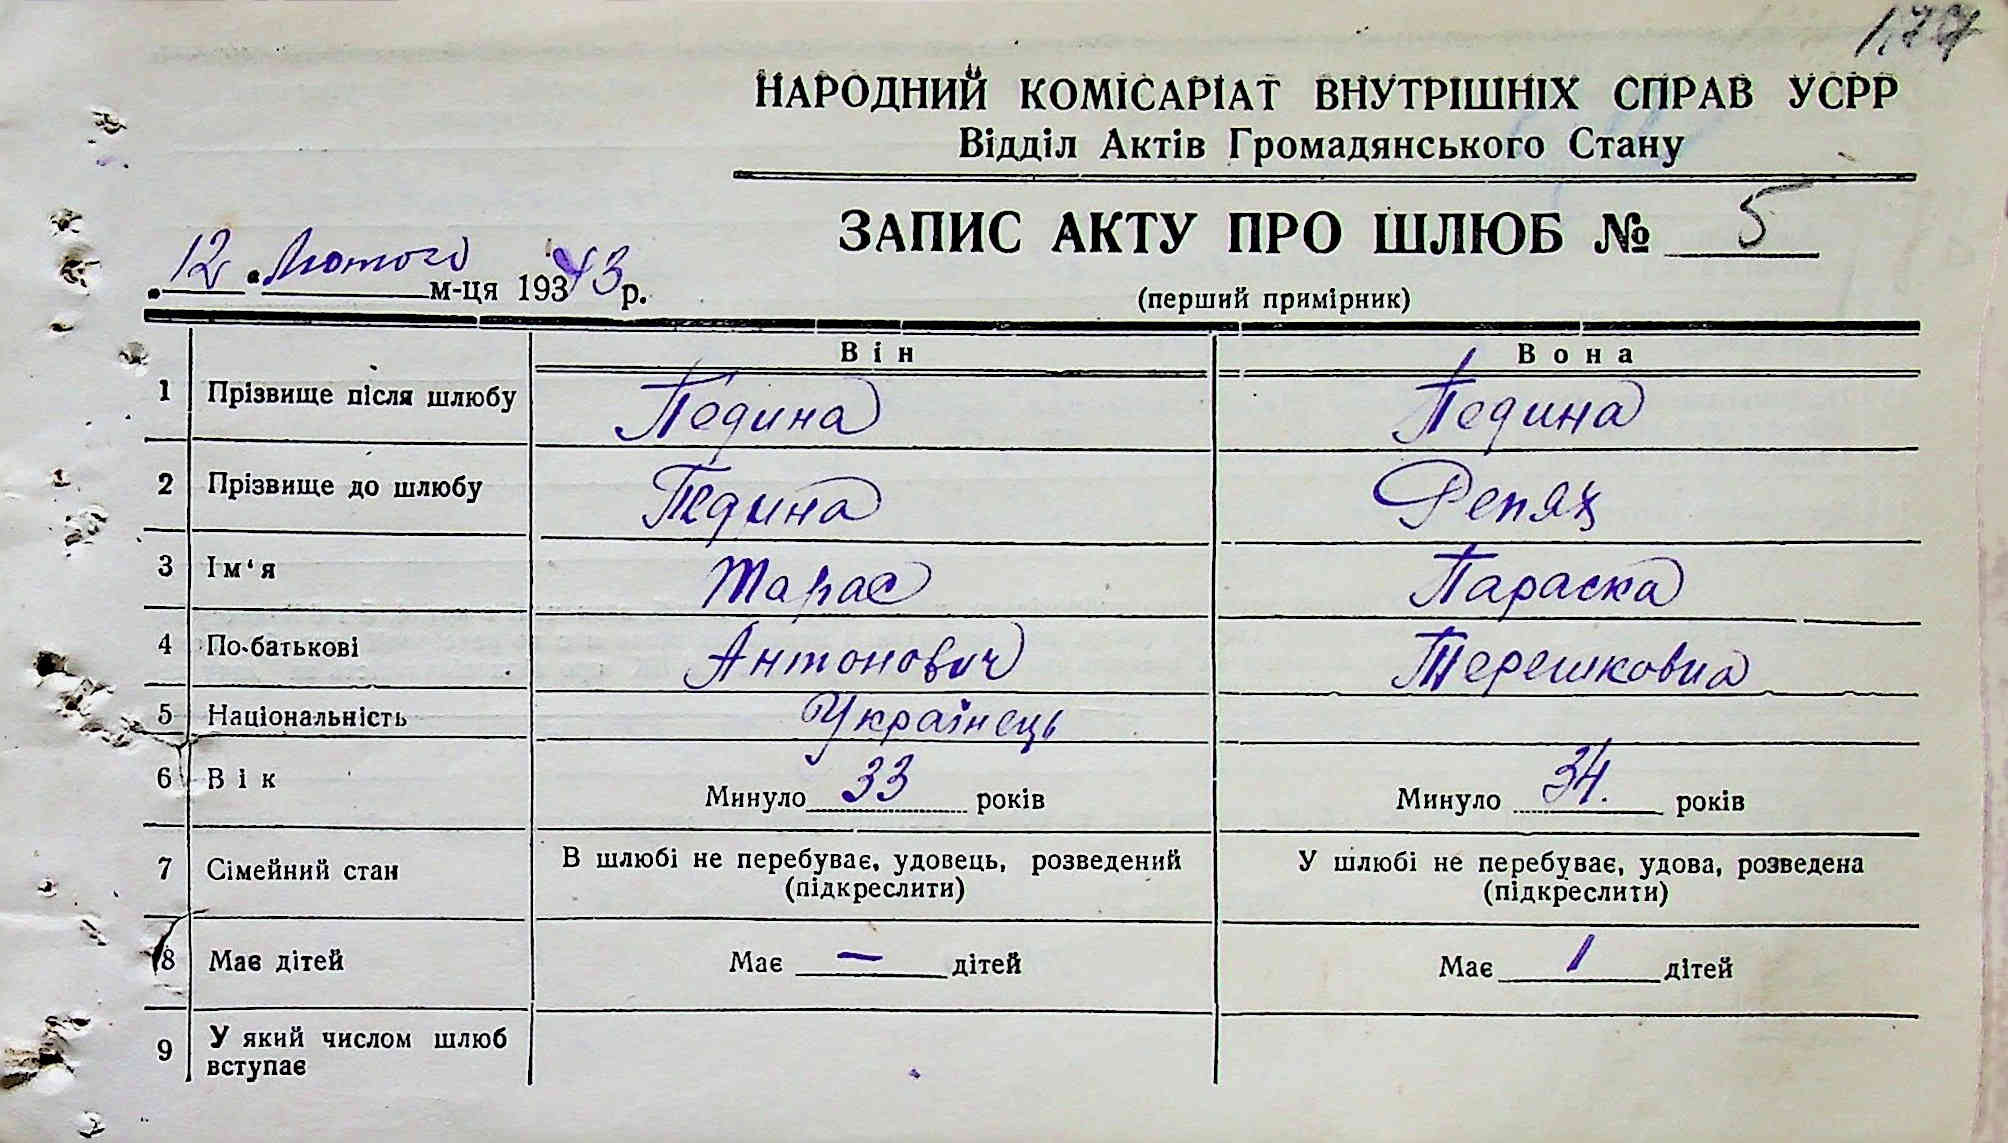 174
НАРОДНИЙ КОМІСАРІАТ ВНУТРІШНІХ СПРАВ УСРР
Відділ Актів Громадянського Стану
ЗАПИС АКТУ ПРО ШЛЮБ № 5
(перший примірник)
12 Лютого м-ця 193 43 р.
Він Вона
1 Прізвище після шлюбу Педина Педина
2 Прізвище до шлюбу Педина Репях
3 Ім'я Тарас Параска
4 По-батькові Антонович Терешковна
5 Національність Українець
6 Вік Минуло 33 років Минуло 34. років
7 Сімейний стан В шлюбі не перебуває, удовець, розведений (підкреслити) У шлюбі не перебуває, удова, розведена (підкреслити)
8 Має дітей Має — дітей Має 1 дітей
9 У який числом шлюб вступає